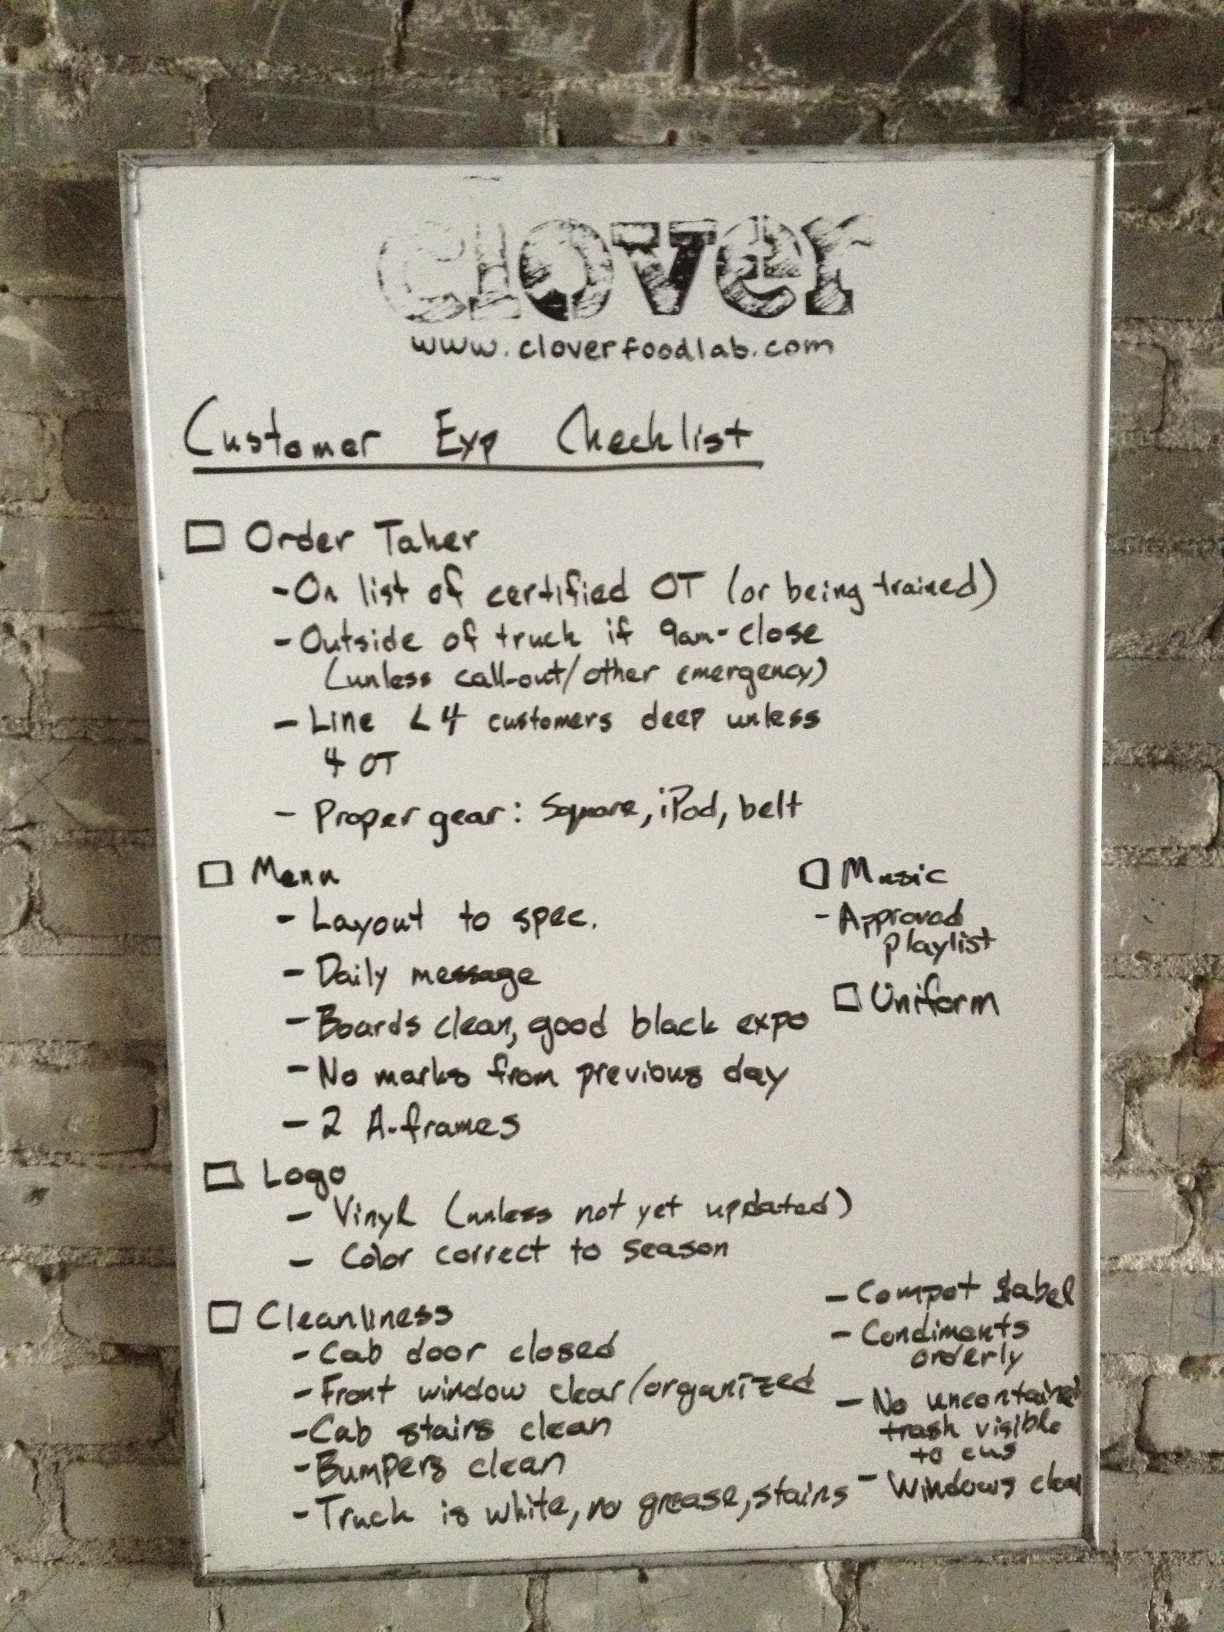 clover
www.cloverfoodlab.com
Customer Exp Checklist
Order Taker
- On list of certified OT (or being trained)
- Outside of truck if 9am-close
(unless call-out/other emergency)
- Line < 4 customers deep unless
4 OT
- Proper gear: Square, iPod, belt
Menu
- Layout to spec.
- Daily message
- Boards clean, good black expo
- No marks from previous day
- 2 A-frames
Music
- Approved
playlist
Uniform
Logo
- Vinyl (unless not yet updated)
- Color correct to season
Cleanliness
- Cab door closed
- Front window clear/organized
- Cab stairs clean
- Bumpers clean
- Truck is white, no grease, stains
- Compot label
- Condiments
orderly
- No uncontained
trash visible
to cus
- Windows clean